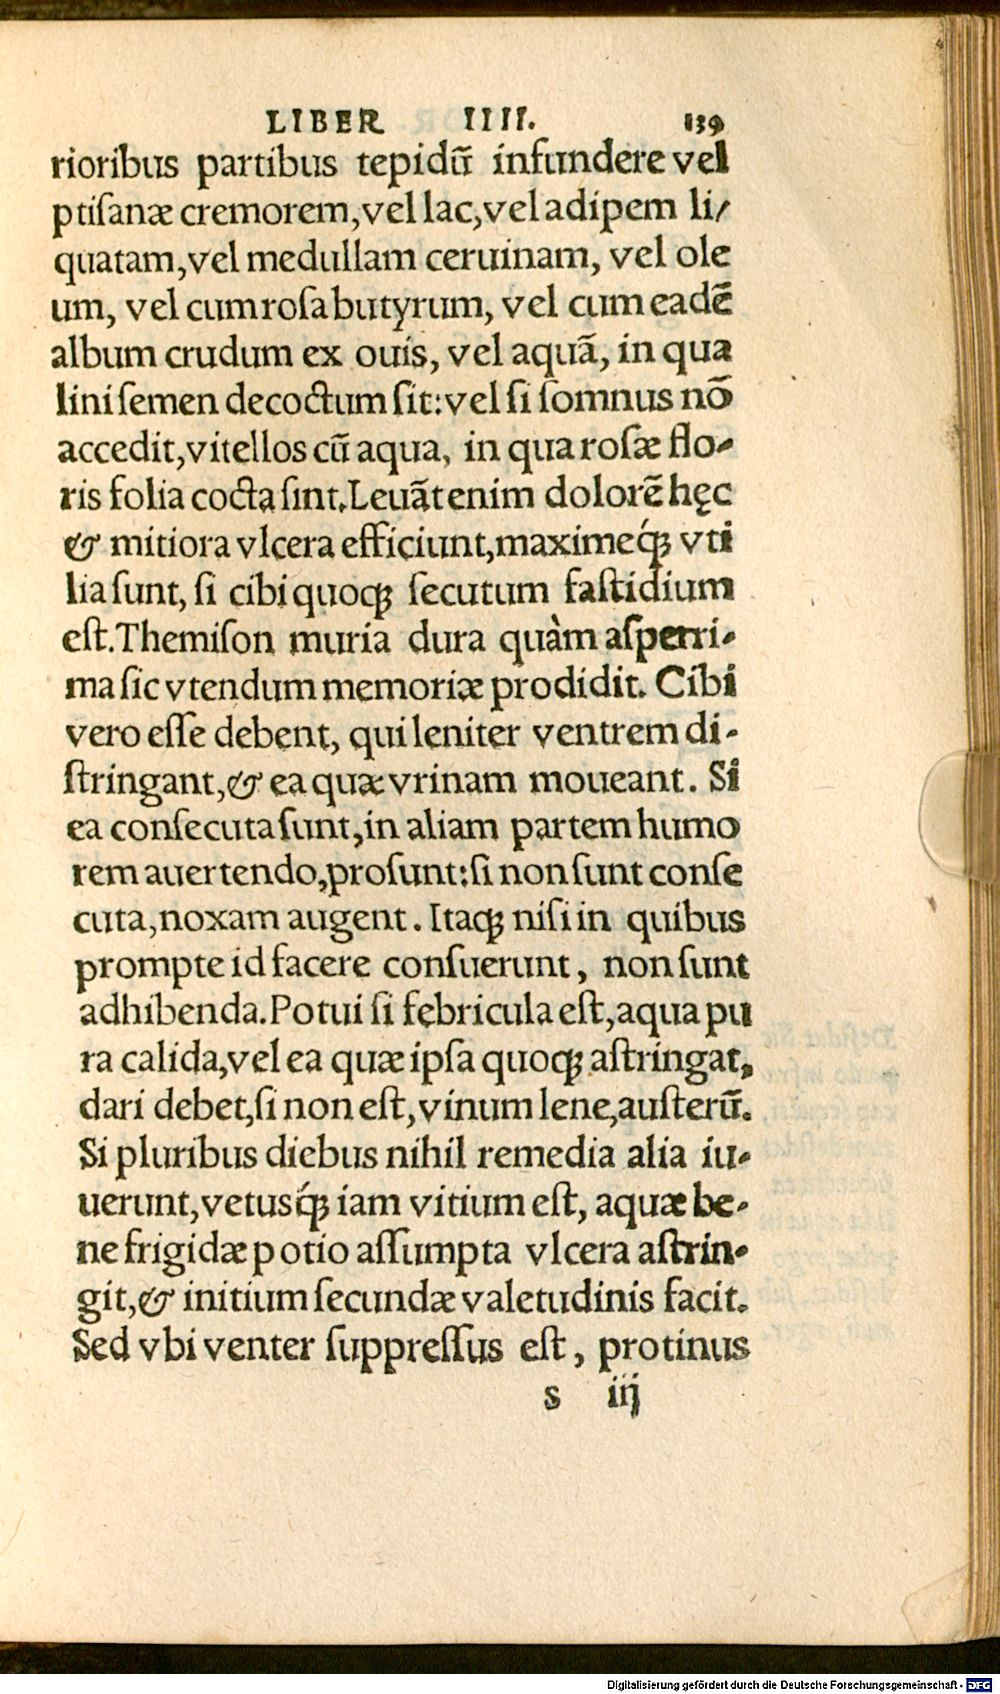 LIBER IIII. 139
rioribus partibus tepidū infundere vel
ptiſanæ cremorem,vel lac,vel adipem li/
quatam,vel medullam ceruinam, vel ole
um, vel cum roſa butyrum, vel cum eadē
album crudum ex ouis, vel aquā, in qua
lini ſemen decoctum ſit:vel ſi ſomnus nō
accedit,vitellos cū aqua, in qua roſæ flo-
ris folia cocta ſint.Leuāt enim dolorē hęc
& mitiora vlcera efficiunt,maximeq́; vti
lia ſunt, ſi cibi quoq; ſecutum faſtidium
eſt.Themiſon muria dura quàm aſperri-
ma ſic vtendum memoriæ prodidit. Cibi
vero eſſe debent, qui leniter ventrem di-
ſtringant,& ea quæ vrinam moueant. Si
ea conſecuta ſunt,in aliam partem humo
rem auertendo,proſunt:ſi non ſunt conſe
cuta,noxam augent. Itaq; niſi in quibus
prompte id facere conſuerunt, non ſunt
adhibenda.Potui ſi febricula eſt,aqua pu
ra calida,vel ea quæ ipſa quoq; aſtringat,
dari debet,ſi non eſt,vinum lene,auſterū.
Si pluribus diebus nihil remedia alia iu-
uerunt,vetusq́; iam vitium eſt, aquæ be-
ne frigidæ potio aſſumpta vlcera aſtrin-
git,& initium ſecundæ valetudinis facit.
Sed vbi venter ſuppreſſus eſt, protinus
s iij
Digitalisierung gefördert durch die Deutsche Forschungsgemeinschaft - DFG